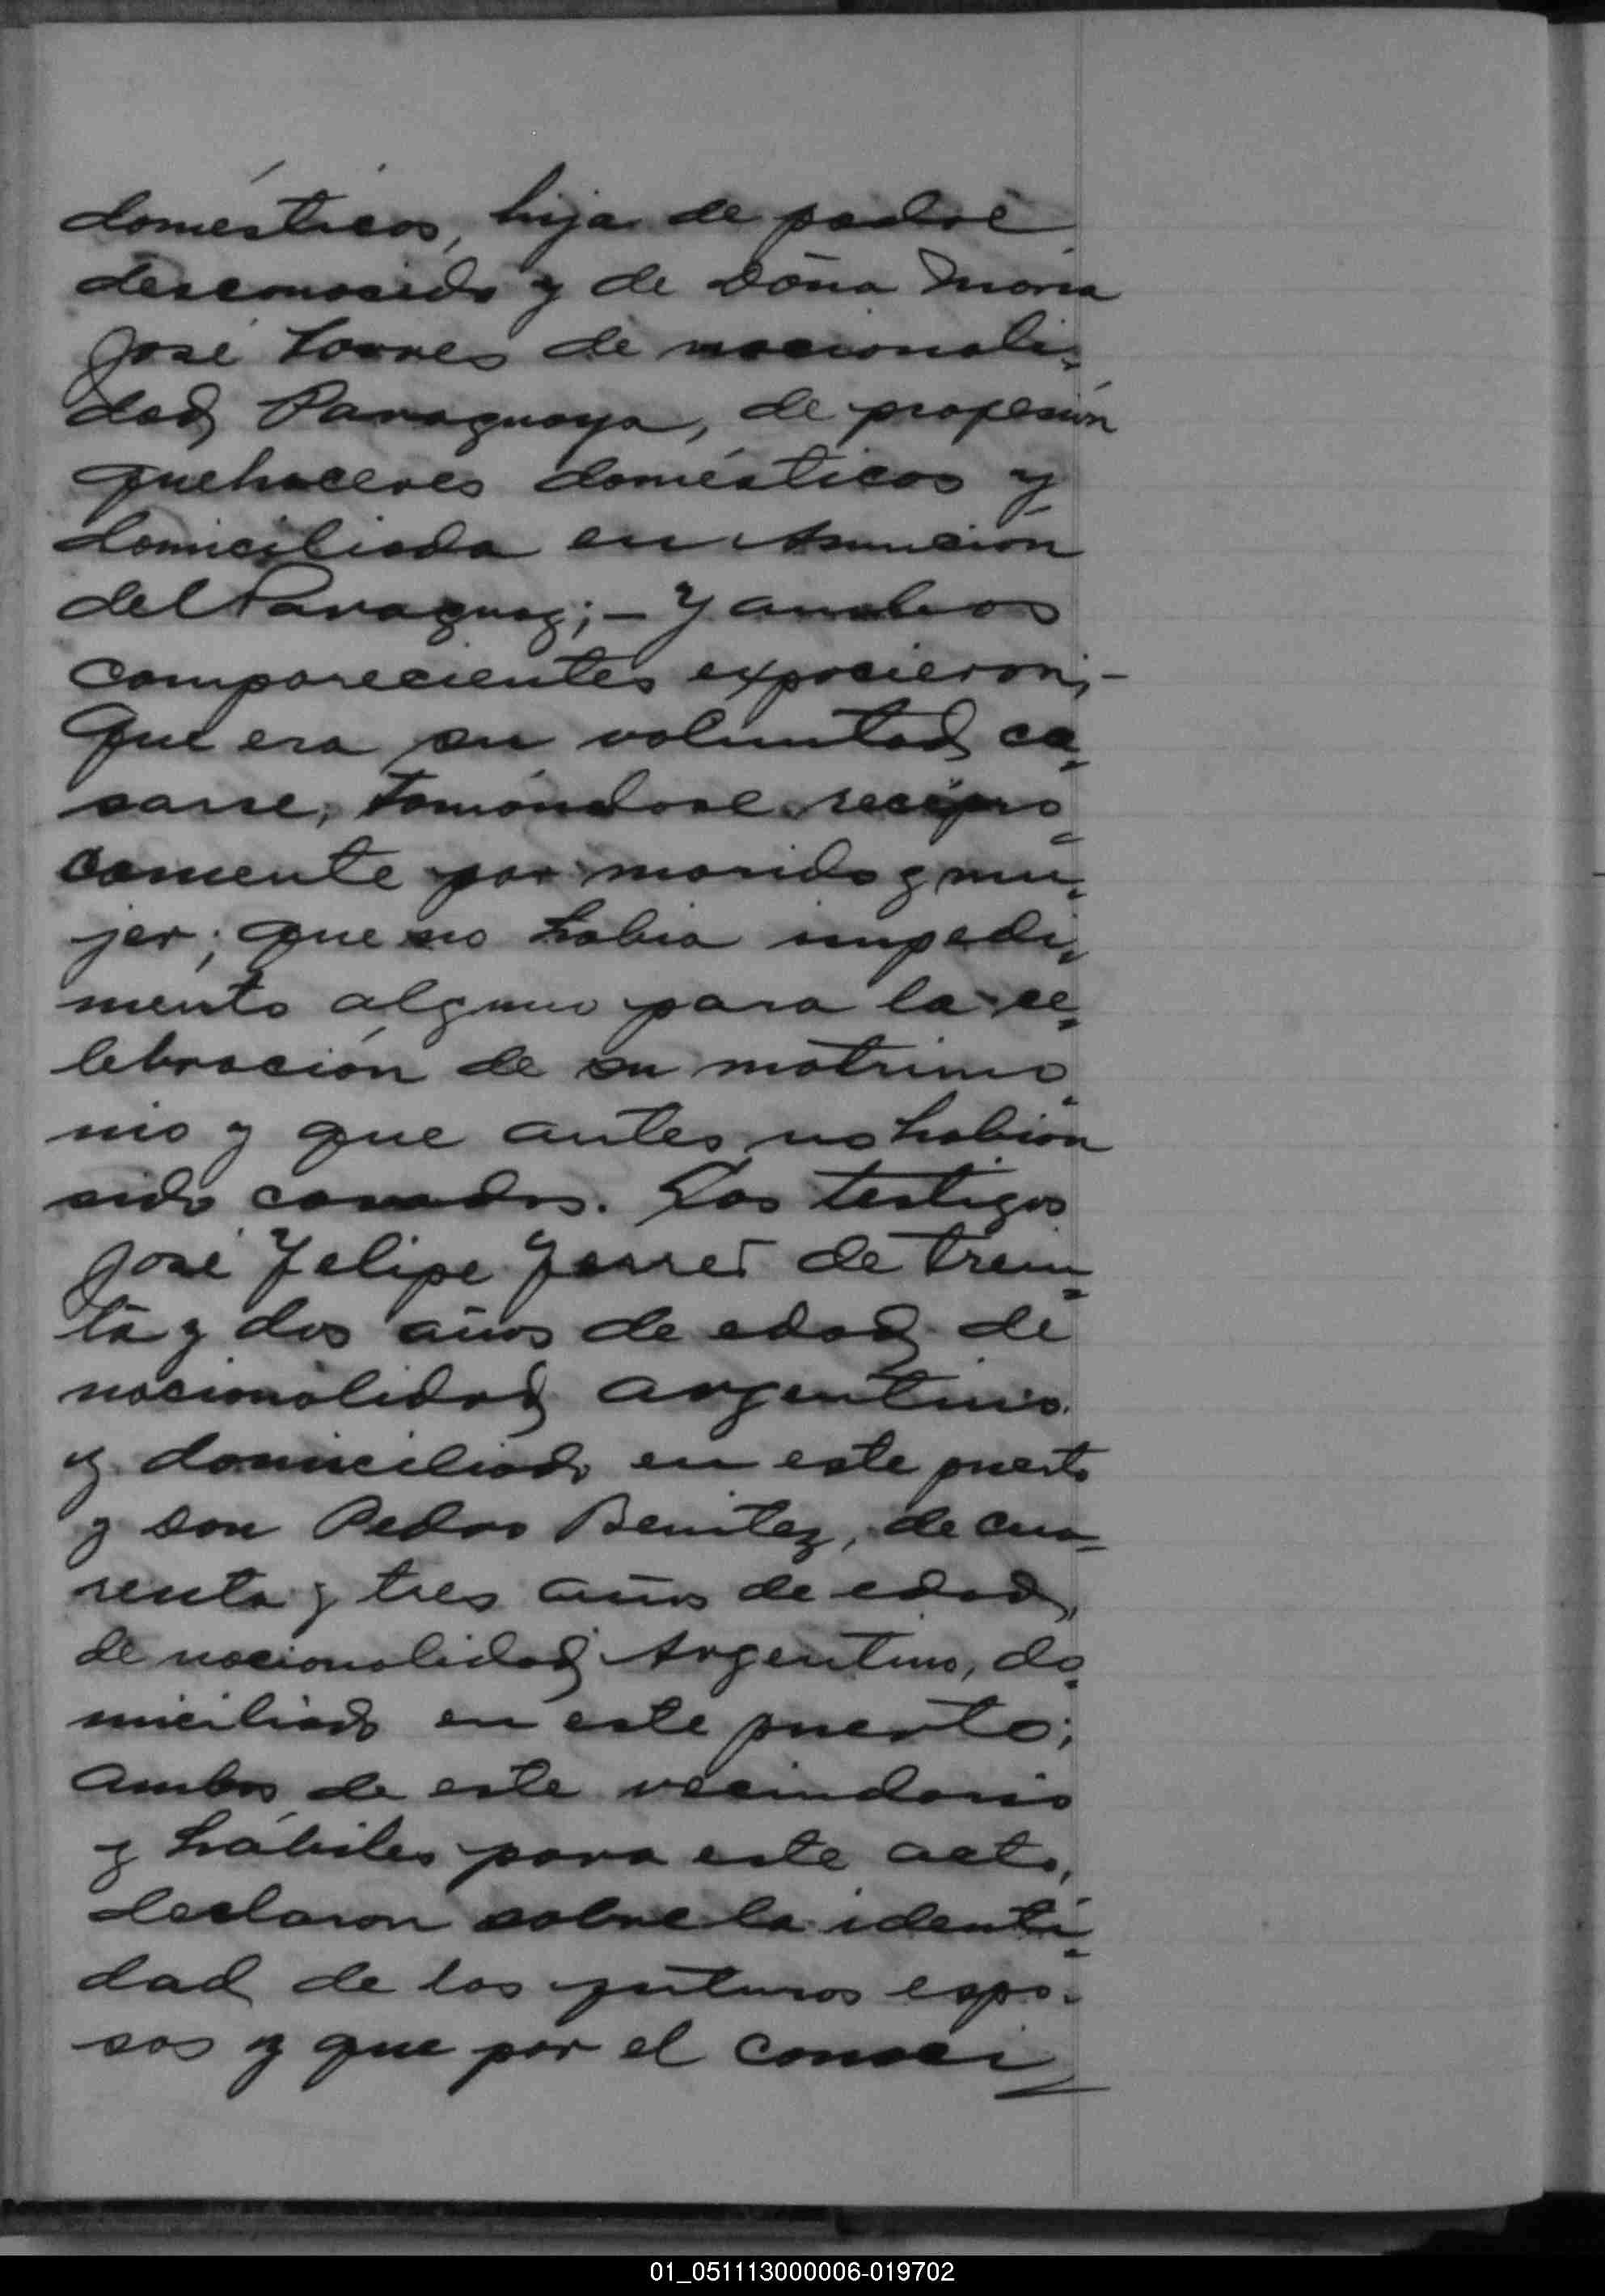 domésticos, hija de padre
desconocido y de Doña María
José Torres de nacionali-
dad Paraguaya, de profesión
quehaceres domésticos y
domiciliada en Asunción
del Paraguay; - Y ambos
comparecientes exposieron; -
Que era su voluntad ca-
sarse, tomándose recipro-
camente por marido y mu-
jer; que no había impedi-
mento alguno para la ce-
lebración de su matrimo-
nio y que antes no habian
sido casados. Los testigos
José Felipe Ferrer de trein-
ta y dos años de edad de
nacionalidad argentino
y domiciliado en este puerto
y Don Pedro Benitez, de cua-
renta y tres años de edad,
de nacionalidad Argentino, do-
miciliado en este puerto;
ambos de este vecindario
y hábiles para este acto,
declaron sobre la identi-
dad de los futuros espo-
sos y que por el conoci-
01_051113000006-019702